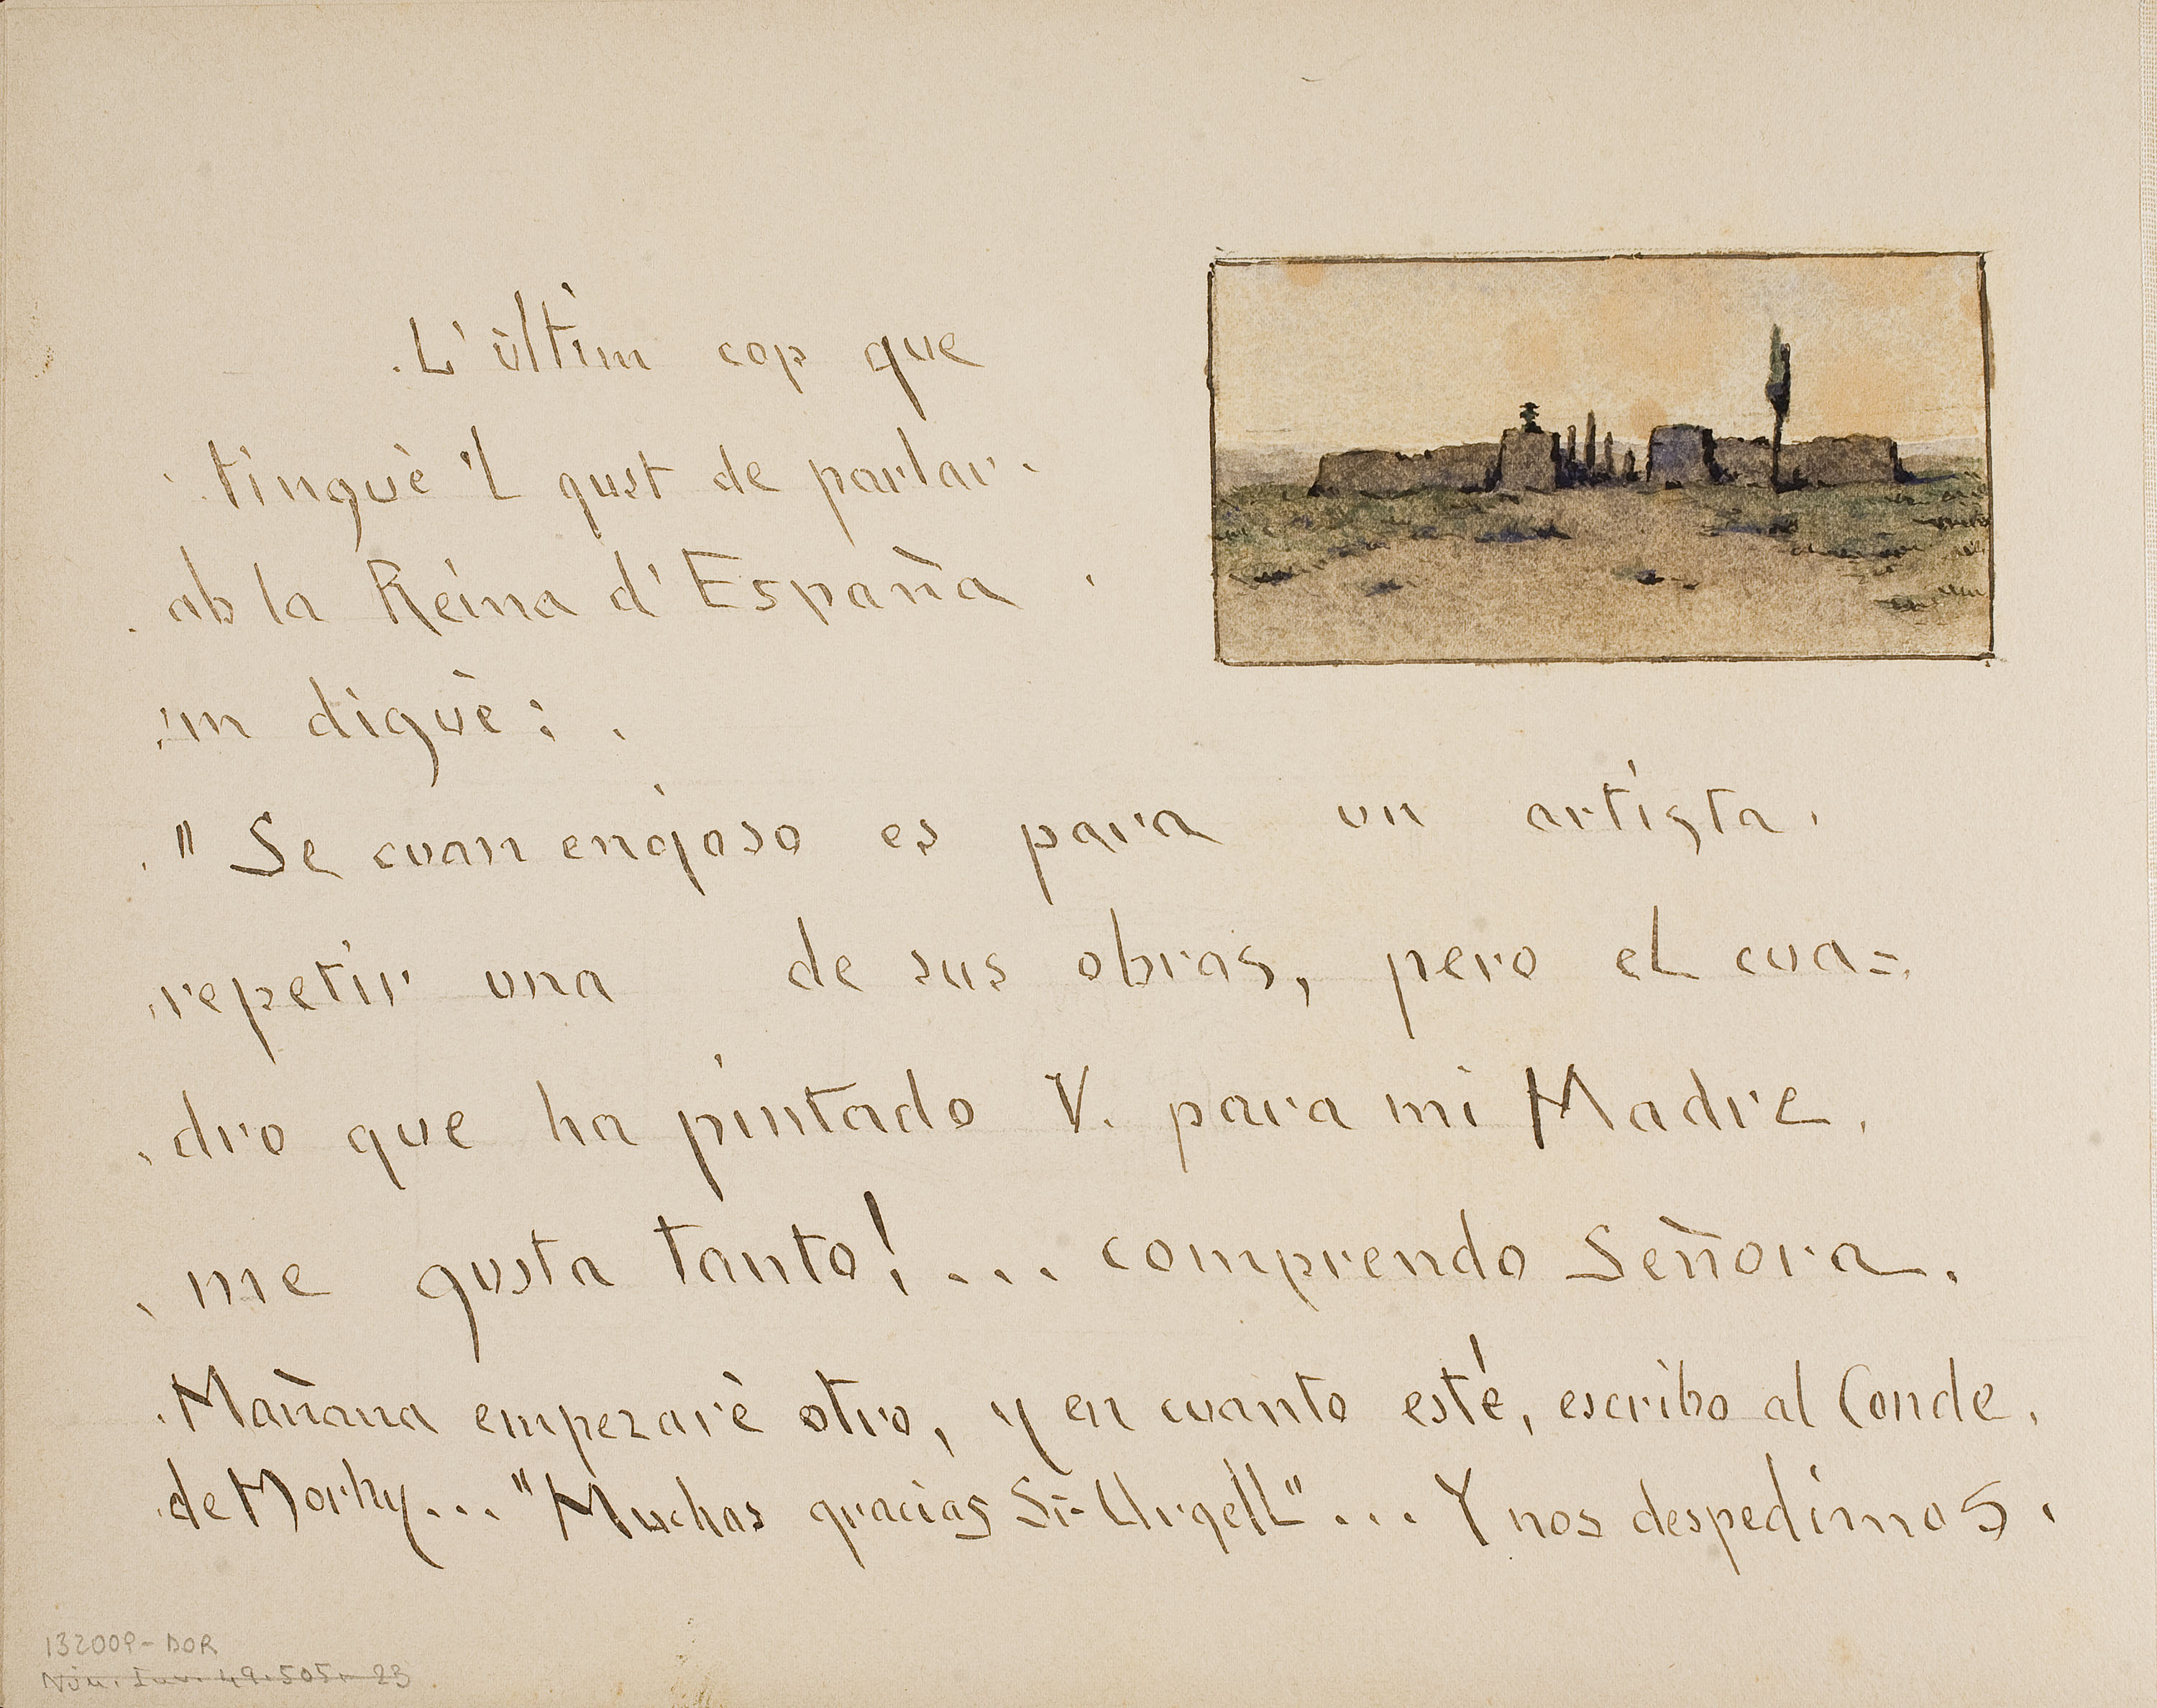 L'últim cop que
tinguè 'l gust de parlar
ab la Reina d'España
'm diguè:
"Se cuan enojoso es para un artista
repetir una de sus obras, pero el cua=
dro que ha pintado V. para mi Madre
me gusta tanto!... comprendo Señora.
Mañana empezarè otro, y en cuanto esté, escribo al Conde
de Morhy... "Muchas gracias Sr. Urgell"... Y nos despedimos.
132009-DOR
Núm. Inv. 49.505-23